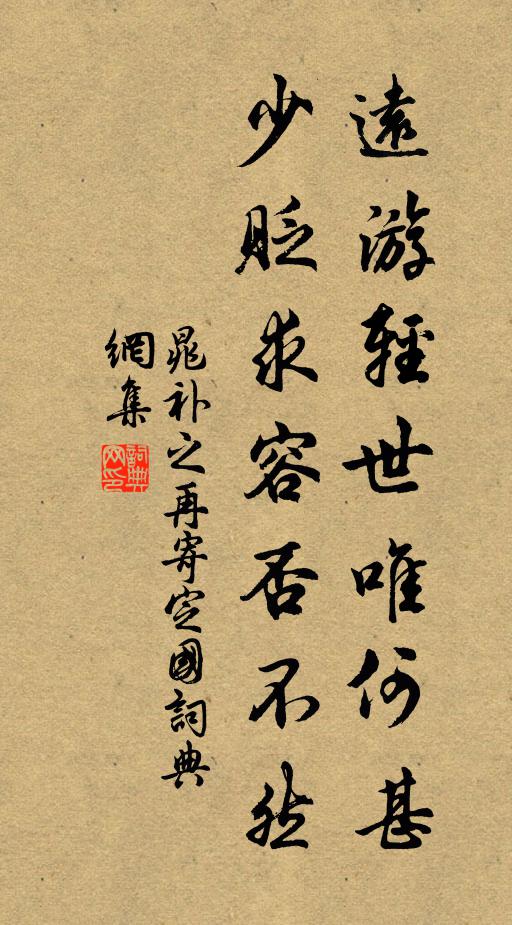 遠游輕世唯何甚
少貶求容否不然
晁补之再寄定國詞典
網集
詞典網印